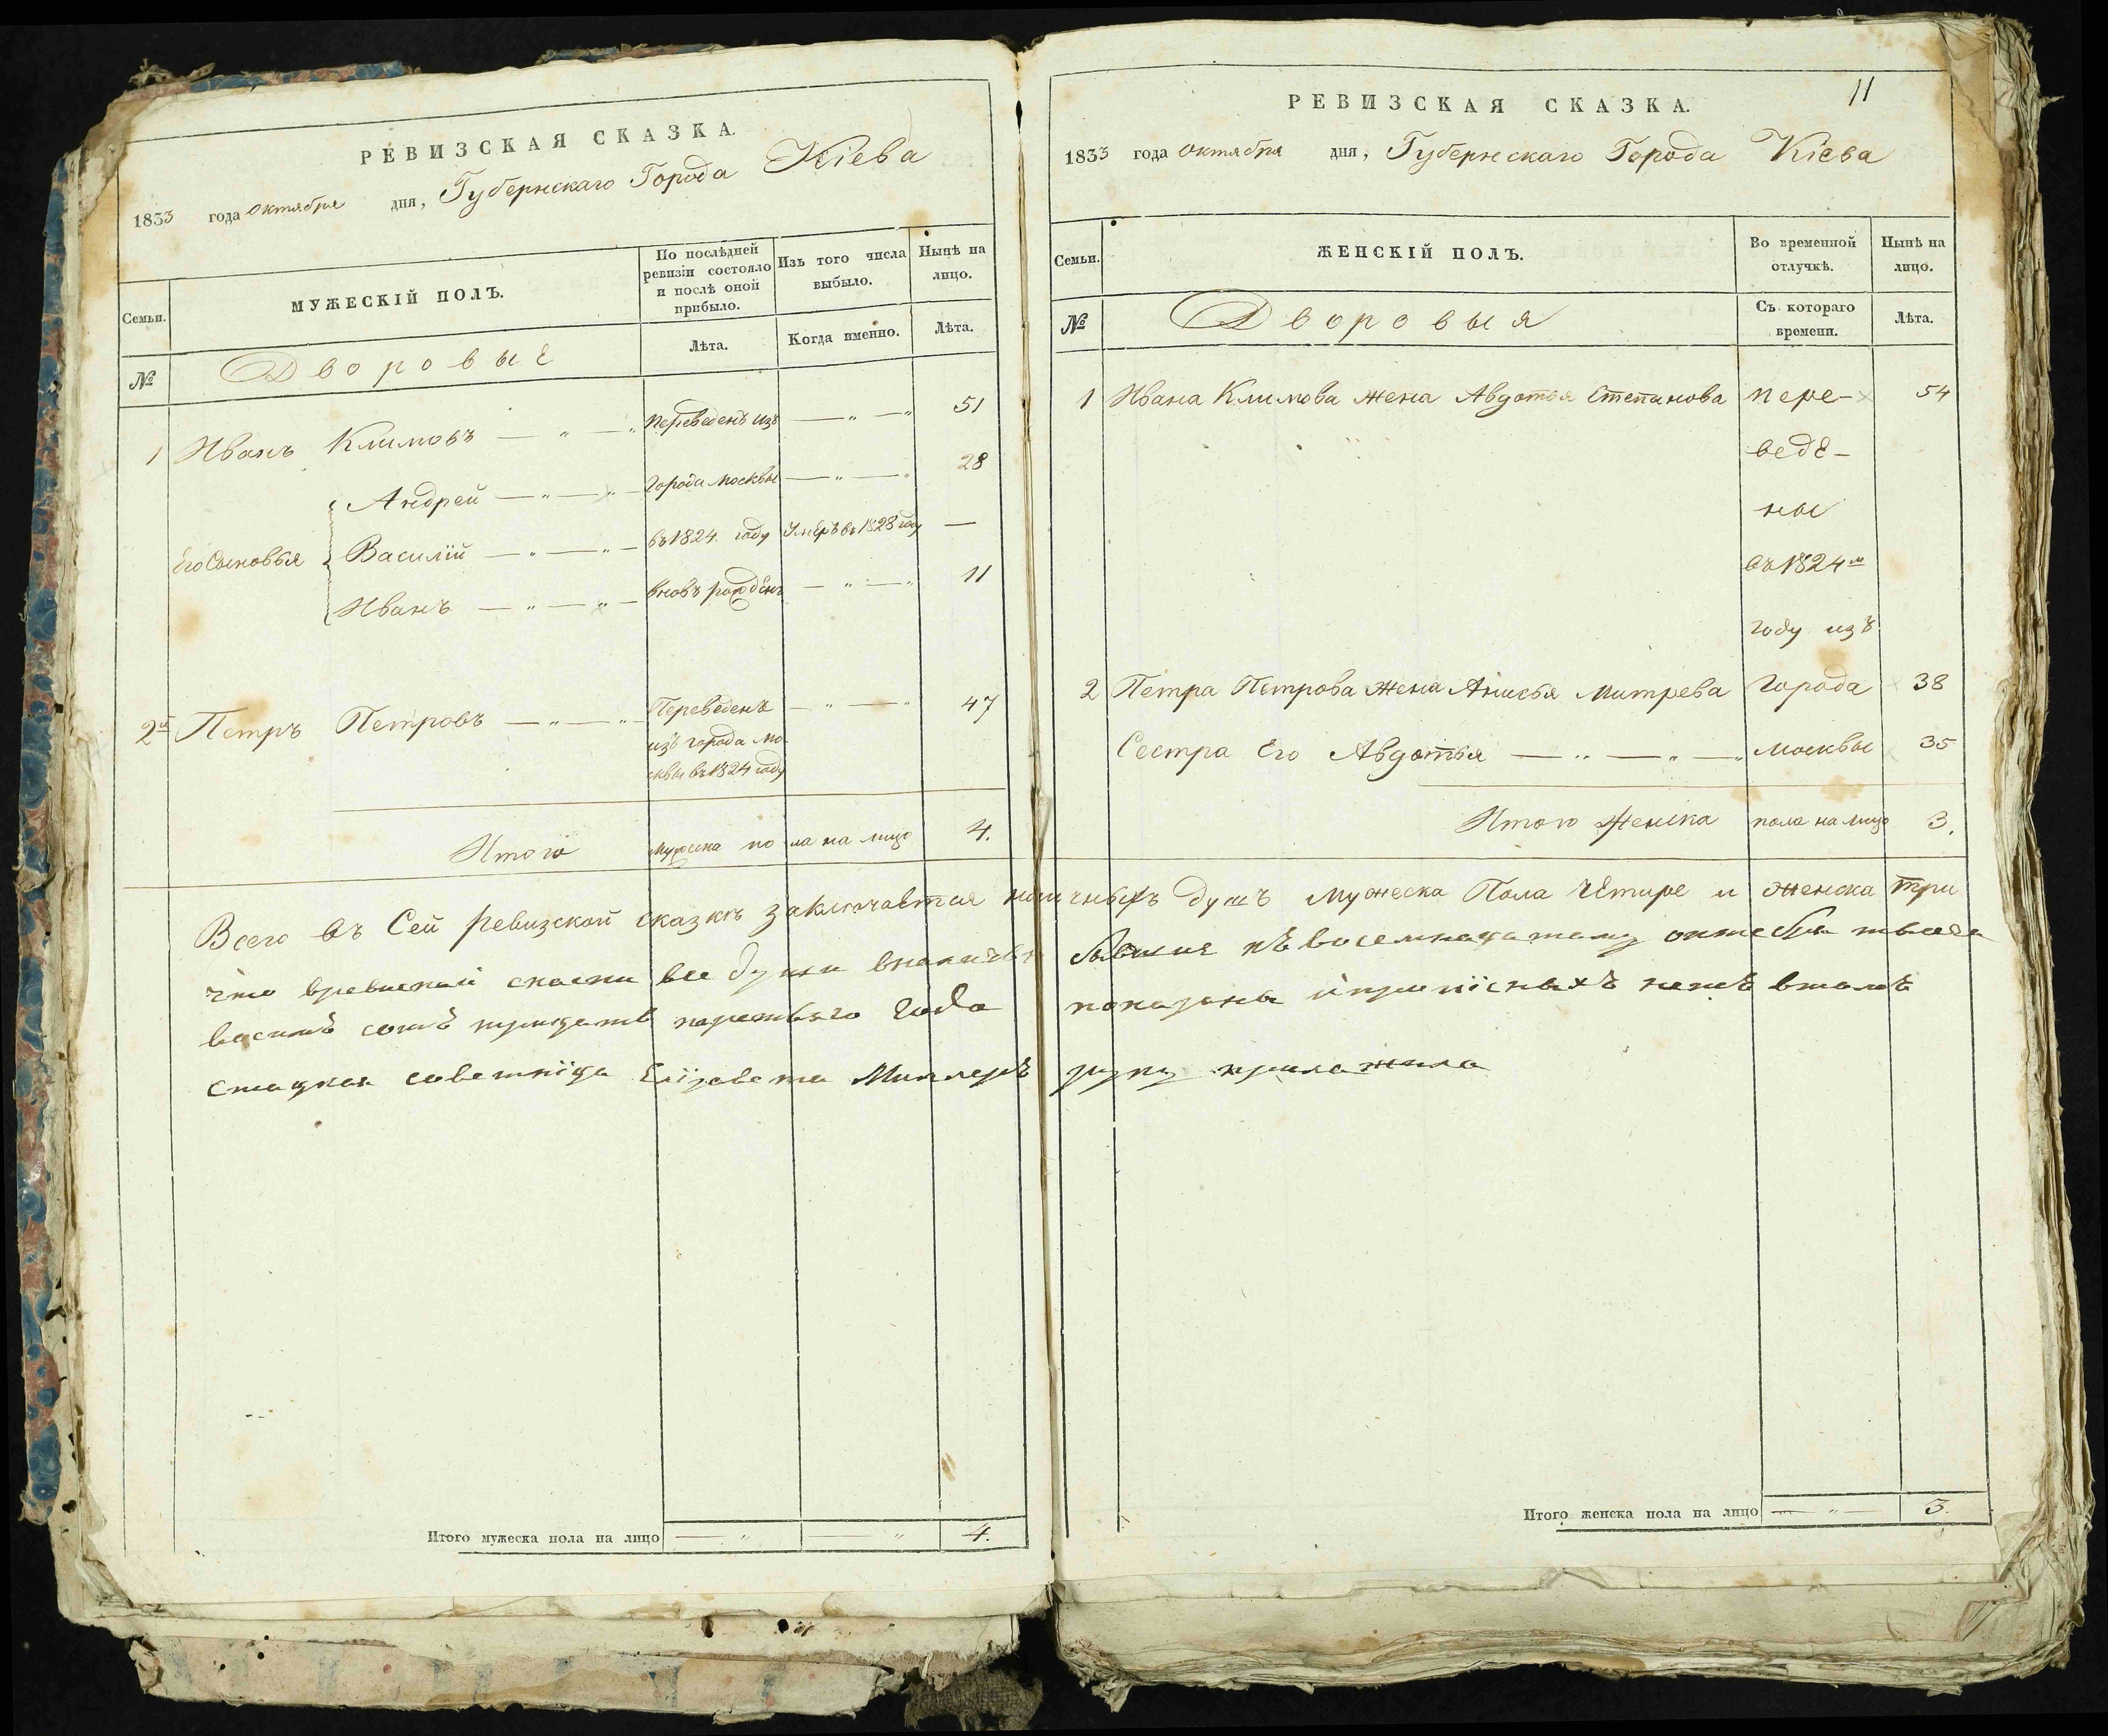 РЕВИЗСКАЯ СКАЗКА.
1833 года октября дня, Губернскаго Города Кіева
Семьи.
МУЖЕСКІЙ ПОЛЪ.
По послѣдней
ревизіи состояло
и послѣ оной
прибыло.
Изъ того числа
выбыло.
Нынѣ на
лицо.
Лѣта.
Когда именно.
Лѣта.
№
Дворовые
1 Иванъ Климовъ — „ — „ Переведенъ изъ — „ — „ 51
Андрей — „ — „ — города Москвы — „ — „ 28
Его Сыновья Василій — „ — „ — въ 1824 году Умеръ въ 1828 году —
Иванъ — „ — „ — вновь рожденъ — „ — „ 11
2й Петръ Петровъ — „ — „ Переведенъ — „ — „ 47
изъ города Мо-
сквы въ 1824 году
Итого мужеска пола на лицо 4.
Итого мужеска пола на лицо — „ — „ 4.
11
РЕВИЗСКАЯ СКАЗКА.
1833 года октября дня, Губернскаго Города Кіева
Семьи.
ЖЕНСКІЙ ПОЛЪ.
Во временной
отлучкѣ.
Нынѣ на
лицо.
№
Дворовыя
Съ котораго
времени.
Лѣта.
1 Ивана Климова жена Авдотья Степанова пере- 54
веде-
ны
въ 1824м
году изъ
2 Петра Петрова жена Анисья Митрева города 38
Сестра Его Авдотья — „ — „ — „ Москвы 35
Итого Женска пола на лицо 3.
Всего въ Сей ревизской сказкѣ заключается наличныхъ душъ мужеска Пола четыре и женска три
что все души къ восемнацатому
восимъ сотъ трицать третьяго Года показаны
стацкая советніца Елізавета Миллеръ руку приложила
Итого женска пола на лицо — „ — 3.